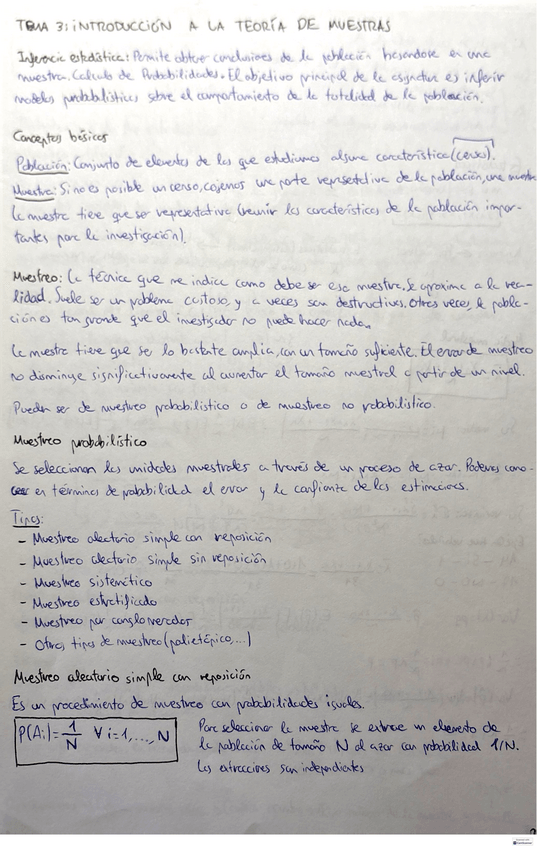 TEMA 3: INTRODUCCIÓN A LA TEORÍA DE MUESTRAS
Inferencia estadística: Permite obtener conclusiones de la población basandose en una
muestra. Calculo de Probabilidades. El objetivo principal de la asignatura es inferir
modelos probabilísticos sobre el comportamiento de la totalidad de la población.
Conceptos básicos
Población: Conjunto de elementos de los que estudiamos alguna característica (censo).
Muestra: Si no es posible un censo, cojemos una parte representativa de la población, una muestra.
La muestra tiene que ser representativa (reunir las características de la población impor-
tantes para la investigación).
Muestreo: La técnica que me indica como debe ser esa muestra. Se aproxima a la rea-
lidad. Suele ser un problema costoso, y a veces son destructivos. Otras veces, la pobla-
ción es tan grande que el investigador no puede hacer nada.
La muestra tiene que ser lo bastante amplia, con un tamaño suficiente. El error de muestreo
no disminuye significativamente al aumentar el tamaño muestral a partir de un nivel.
Pueden ser de muestreo probabilístico o de muestreo no probabilístico.
Muestreo probabilístico
Se seleccionan las unidades muestrales a través de un proceso de azar. Podemos cono-
cer en términos de probabilidad el error y la confianza de las estimaciones.
Tipos:
- Muestreo aleatorio simple con reposición
- Muestreo aleatorio simple sin reposición
- Muestreo sistemático
- Muestreo estratificado
- Muestreo por conglomerados
- Otros tipos de muestreo (polietápico,...)
Muestreo aleatorio simple con reposición
Es un procedimiento de muestreo con probabilidades iguales.
P(Ai)= 1/N ∀ i=1,..., N
Para seleccionar la muestra se extrae un elemento de
la población de tamaño N al azar con probabilidad 1/N.
Las extracciones son independientes